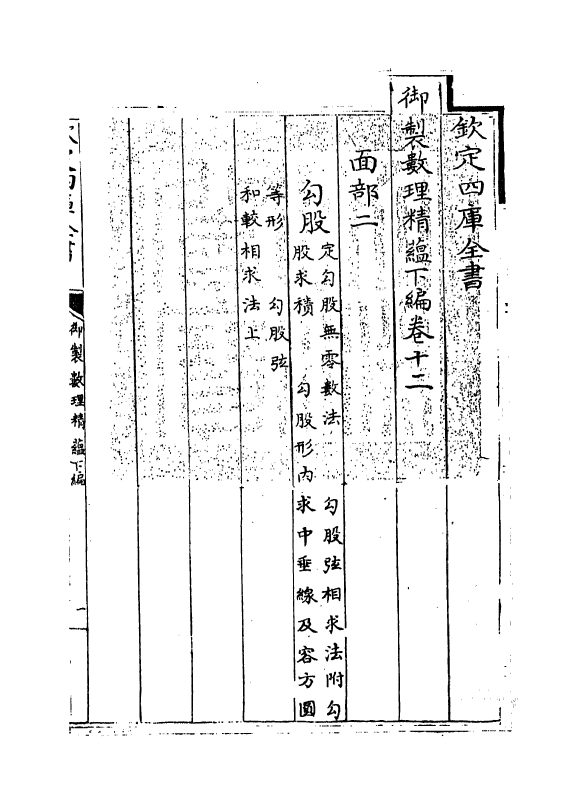 欽定四庫全書
御製數理精蘊下編卷十二
面部二
勾股
定勾股無零數法　勾股弦相求法附勾
股求積　勾股形内求中垂線及容方圓
等形　勾股弦
和較相求法上
御製數理精蘊下編